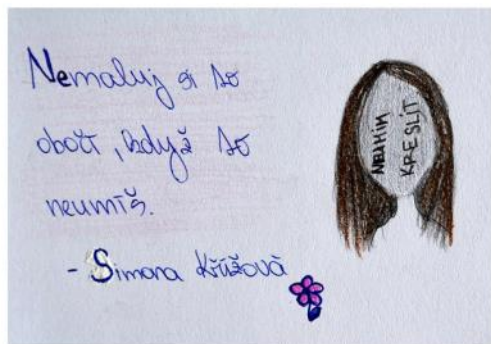 Nemaluj si to
obočí, když to
neumíš.
- Simona Křížová
NEUMIM
KRESLIT